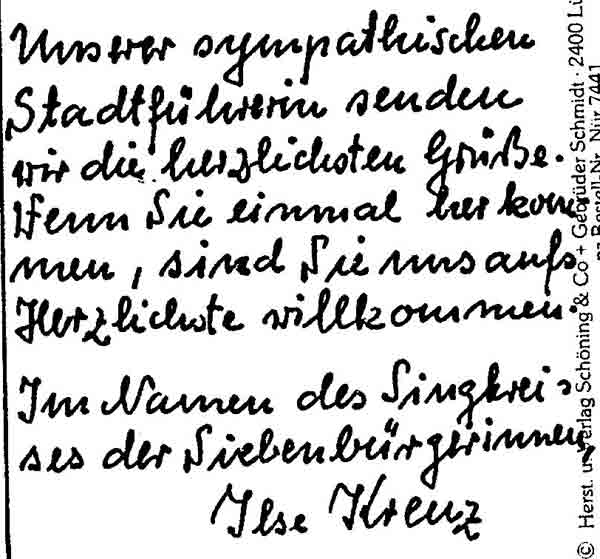 Unserer sympathischen
Stadtführerin senden
wir die herzlichsten Grüße.
Wenn Sie einmal her kom
men, sind Sie uns aufs
Herzlichste willkommen.
Im Namen des Singkrei-
ses der Siebenbürgerinnen,
Ilse Krenz
© Herst. u. Verlag Schöning & Co + Gebrüder Schmidt · 2400 Lü
Bestell-Nr. Nür 7441